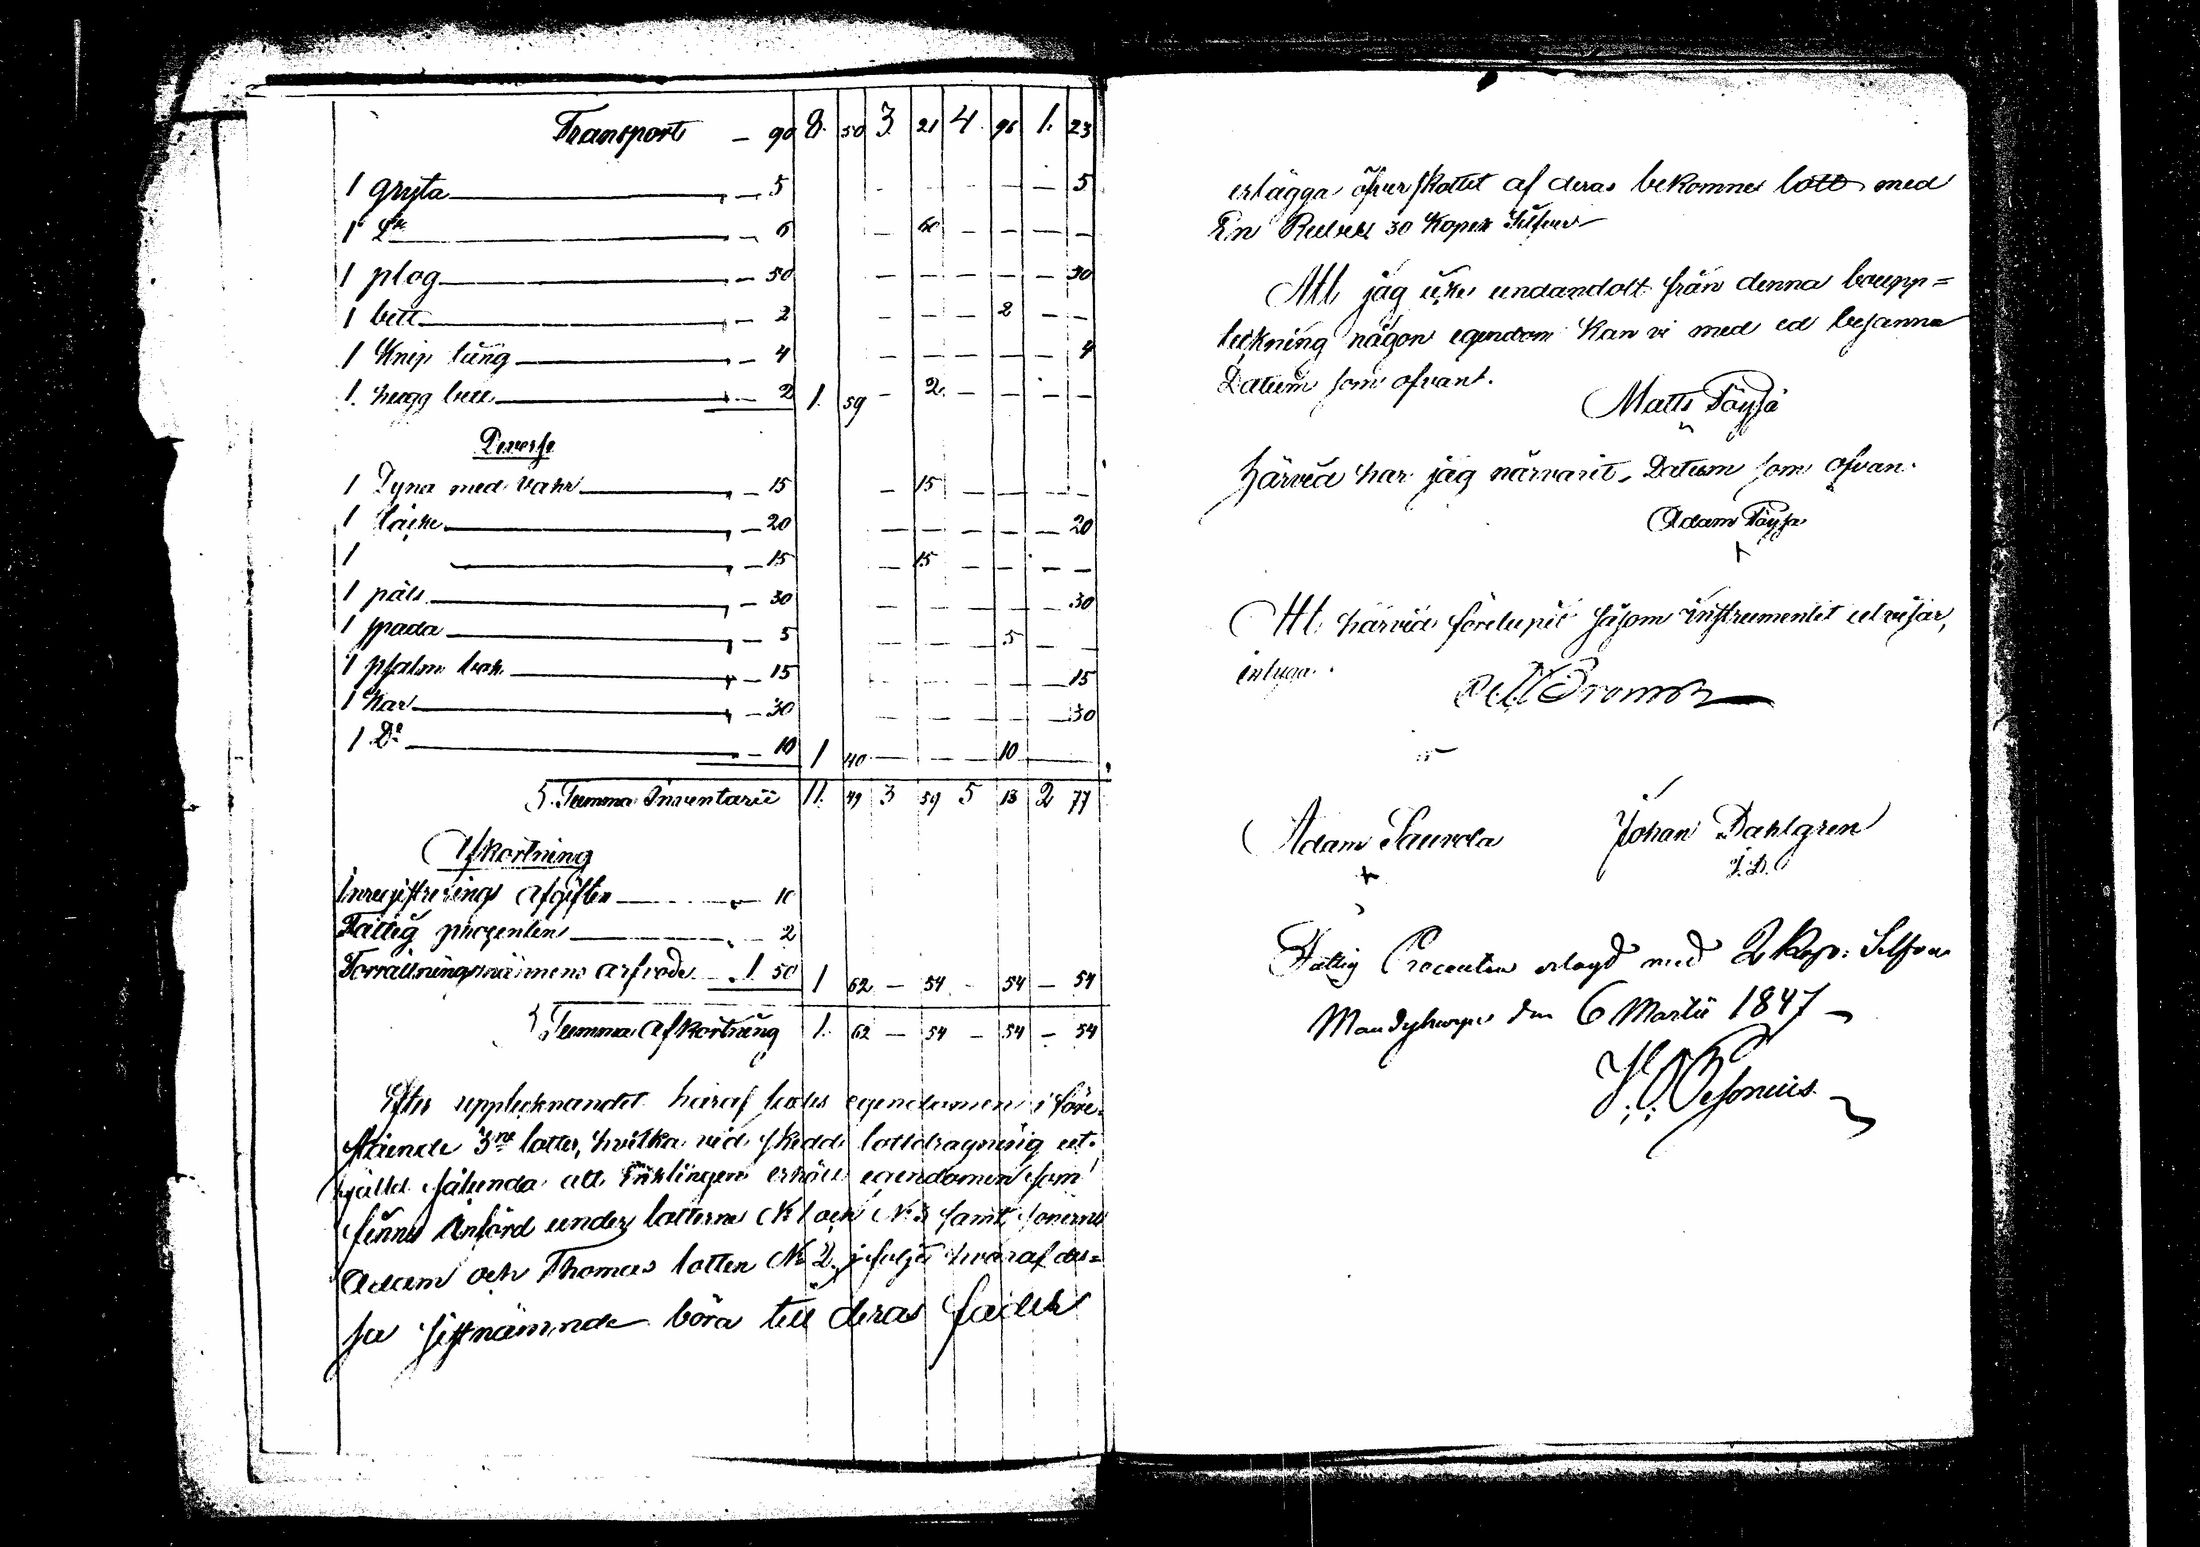 Transport – 90 8. 50 3 21 4 96 1. 23
1 gryta – 5 – – – – – 5
1 Do – 6 – 60 – – – –
1 plog – 50 – – – – – 50
1 bett – 2 – – – 2 – –
1 Knip tång – 4 – – – – – 4
1. hugg bett – 2 1. 59 – 2 – – – –
Diverse
1 Dyna med vahr – 15 – 15 – – – –
1 täcke – 20 – – – – – 20
1 – 15 – 15 – – – –
1 päls – 30 – – – – – 30
1 spada – 5 – – – 5 – –
1 psalm bok – 15 – – – – – 15
1 Kar – 30 – – – – – 30
1 Do – 10 1 40 – – – 10 –
S. Summa Inventarii 11. 49 3 59 5 13 2 77
Afkortning
Inregistrerings afgiften 10
Fattig procenten 2
Förrättningsmännens arfvode 1 50 1 62 – 54 – 54 – 54
S. Summa afkortning 1. 62 – 54 – 54 – 54
Efter upptecknandet häraf lades egendomen i före-
stående 3ne lotter, hvilka vid skedd lottdragning ut-
följde sålunda att Enklingen erhöll egendomen som
finns anförd under lotterne N 1 och N 3 samt sönerne
Adam och Thomas lotten N 2, i följe hvaraf des-
se sistnämnde böra till deras fader
erlägga öfverskottet af deras bekomne lott med
En Rubel 30 Kopek Silfver
Att jag icke undandolt från denna boupp=
teckning någon egendom kan vi med ed besanna
Datum som ofvant.
Matts Töysä
Härvid har jag närvarit, Datum som ofvan.
Adam Töysä
x
Att härvid förelupit såsom instrumentet utvisar,
intyga.
Adam Saurola Johan Dahlgren
x
Fattig Procenten erlagd med 2 Kop: Silfver
den 6 Martii 1847 –